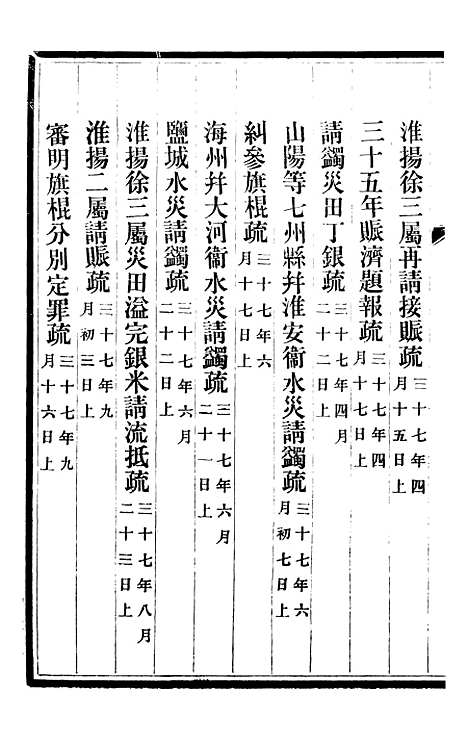 淮揚徐三屬再請接賑疏三十七年四月十五日上
三十五年賑濟題報疏三十七年四月十七日上
請蠲災田丁銀疏三十七年四月二十二日上
山陽等七州縣幷淮安衞水災請蠲疏三十七年六月初七日上
糾參旗棍疏三十七年六月十七日上
海州幷大河衞水災請蠲疏三十七年六月二十一日上
鹽城水災請蠲疏三十七年六月二十二日上
淮揚徐三屬災田溢完銀米請流抵疏三十七年八月二十三日上
淮揚二屬請賑疏三十七年九月初三日上
審明旗棍分別定罪疏三十七年九月十六日上